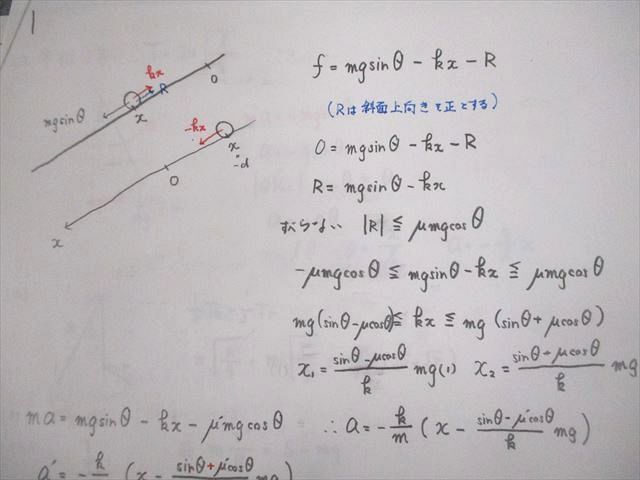 1
f = mg sinθ − kx − R
(Rは斜面上向きを正とする)
0 = mg sinθ − kx − R
R = mg sinθ − kx
すべらない |R| ≦ μmg cosθ
−μmg cosθ ≦ mg sinθ − kx ≦ μmg cosθ
mg(sinθ − μcosθ) ≦ kx ≦ mg(sinθ + μcosθ)
x₁ = (sinθ − μcosθ)/k mg (1) x₂ = (sinθ + μcosθ)/k mg
ma = mg sinθ − kx − μ'mg cosθ ∴ a = −k/m (x − (sinθ − μ'cosθ)/k mg)
a' = −k/m (x − (sinθ + μ'cosθ)/k mg)
kx
R
0
mg sinθ
x
−kx
x
−d
0
x